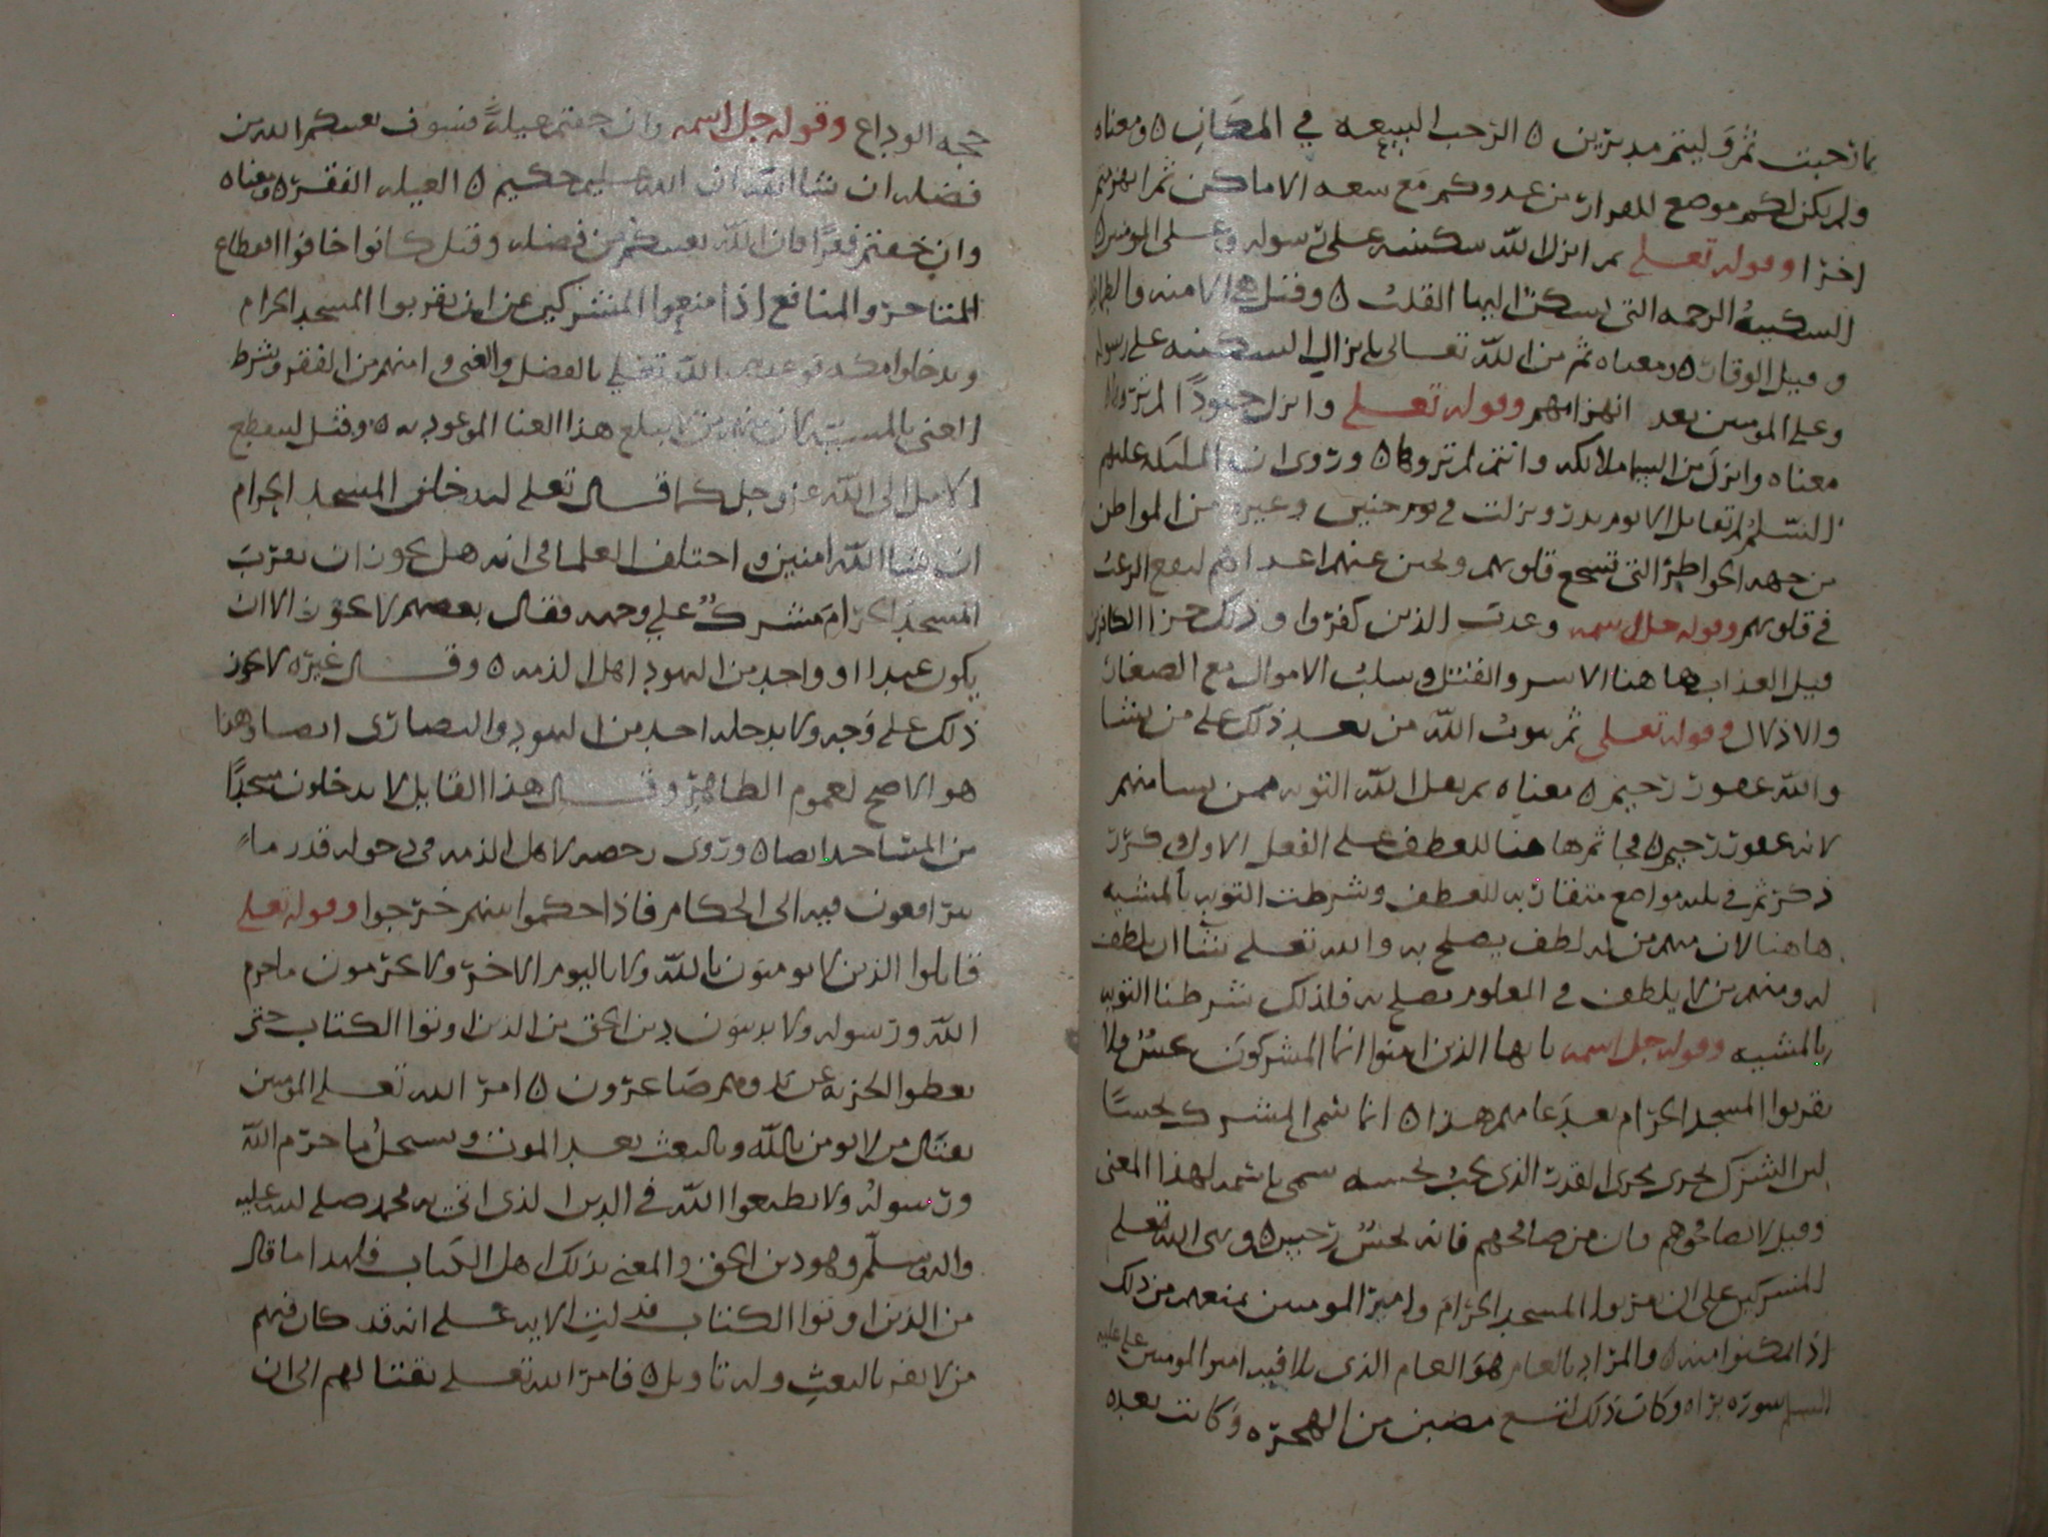 بما رحبت ثم وليتم مدبرين ٥ الرحب السعه في المكان ٥ ومعناه
ولم يكن لكم موضع للفرار من عدوكم مع سعه الاماكن ثم انهزمتم
وقوله تعلى ثم انزل الله سكينته على رسوله وعلى المومنين ٥
السكينة الرحمه التي يسكن اليها القلب ٥ وقيل هي الامنه والطمانينه
وقيل الوقار ٥ ومعناه ثم من الله تعالى بانزال السكينه على رسوله
وعلى المومنين بعد انهزامهم وقوله تعلى وانزل جنودًا لم تروها
معناه وانزل من السما ملائكه وانتم لم تروها ٥ وروى ان الملئكه عليهم
السلم لم تقاتل الا يوم بدر ونزلت في يوم حنين وغيره من المواطن
من جهه الخواطر التي تشجع قلوبهم وتجبن عنهم اعداهم ليقع الرعب
في قلوبهم وقوله جل اسمه وعذب الذين كفروا وذلك جزا الكافرين
قيل العذاب هاهنا الاسر والقتل وسلب الاموال مع الصغار
والاذلال وقوله تعلى ثم يتوب الله من بعد ذلك على من يشا
والله غفور رحيم ٥ معناه ثم يقبل الله التوبه ممن يسا منهم
لانه غفور رحيم ٥ فجا ثم هاهنا للعطف على الفعل الاول وكرر
ذكر ثم في ثلثه مواضع متقاربه للعطف وشرطت التوبه بالمشيه
هاهنا لان منهم من له لطف يصلح به والله تعلى يشا ان يلطف
له ومنهم من لا يلطف في المعلوم يصلح به فلذلك شرطنا التوبه
بالمشيه وقوله جل اسمه يا يها الذين امنوا انما المشركون نجس فلا
يقربوا المسجد الحرام بعد عامهم هذا ٥ انما سمى المشرك نجسًا
لان الشرك يجرى مجرى القذر الذى يجب تجنبه سمى باسمه لهذا المعنى
وقيل لا تصافحوهم فان من صافحهم فانه نجس رجس ٥ ونهى الله تعلى
المشركين على ان يقربوا المسجد الحرام وامر المومنين بمنعهم من ذلك
اذا تمكنوا منه ٥ والمراد بالعام هو العام الذى تلا فيه امير المومنين على عليه
السلم سوره براه وكان ذلك لتسع مضين من الهجره وكانت بعده
حجه الوداع وقوله جل اسمه وان خفتم عيلةً فسوف يغنيكم الله من
فضله ان شا الله ان الله عليم حكيم ٥ العيله الفقر ٥ ومعناه
وان خفتم فقرًا فان الله يغنيكم من فضله وقيل كانوا خافوا انقطاع
المتاجر والمنافع اذا منعوا المشركين عن ان يقربوا المسجد الحرام
ويدخلوا مكه فوعدهم الله تعلى بالفضل والغنى وامنهم من الفقر وشرط
الغنى بالمشيه لان منهم من لا يبلغ هذا الغنا الموعود به ٥ وقيل لينقطع
الامل الى الله عز وجل كما قال تعلى لتدخلن المسجد الحرام
ان شا الله امنين واختلف العلما في انه هل يجوز ان يقرب
المسجد الحرام مشرك على وجه فقال بعضهم لا يجوز الا ان
يكون عبدا او واحد من اليهود اهل الذمه ٥ وقال غيره لا يجوز
ذلك على وجه ولا يدخله احد من اليهود والنصارى ايضا وهذا
هو الاصح لعموم الظاهر وقال هذا القايل لا يدخلون مسجدًا
من المساجد ايضا ٥ وروى رخصه لاهل الذمه في دخوله قدر ما
يترافعون فيه الى الحكام فاذا حكموا بينهم خرجوا وقوله تعلى
قاتلوا الذين لا يومنون بالله ولا باليوم الاخر ولا يحرمون ما حرم
الله ورسوله ولا يدينون دين الحق من الذين اوتوا الكتاب حتى
يعطوا الجزيه عن يد وهم صاغرون ٥ امر الله تعلى المومنين
بقتال من لا يومن بالله وبالبعث بعد الموت ويستحل ما حرم الله
ورسوله ولا يطيعوا الله في الدين الذى اتى به محمد صلى الله عليه
واله وسلم وهو دين الحق والمعنى بذلك اهل الكتاب فلهذا ما قال
من الذين اوتوا الكتاب فدلت الايه على انه قد كان فيهم
من لا يقر بالبعث وله تاويل ٥ فامر الله تعلى بقتالهم الى ان